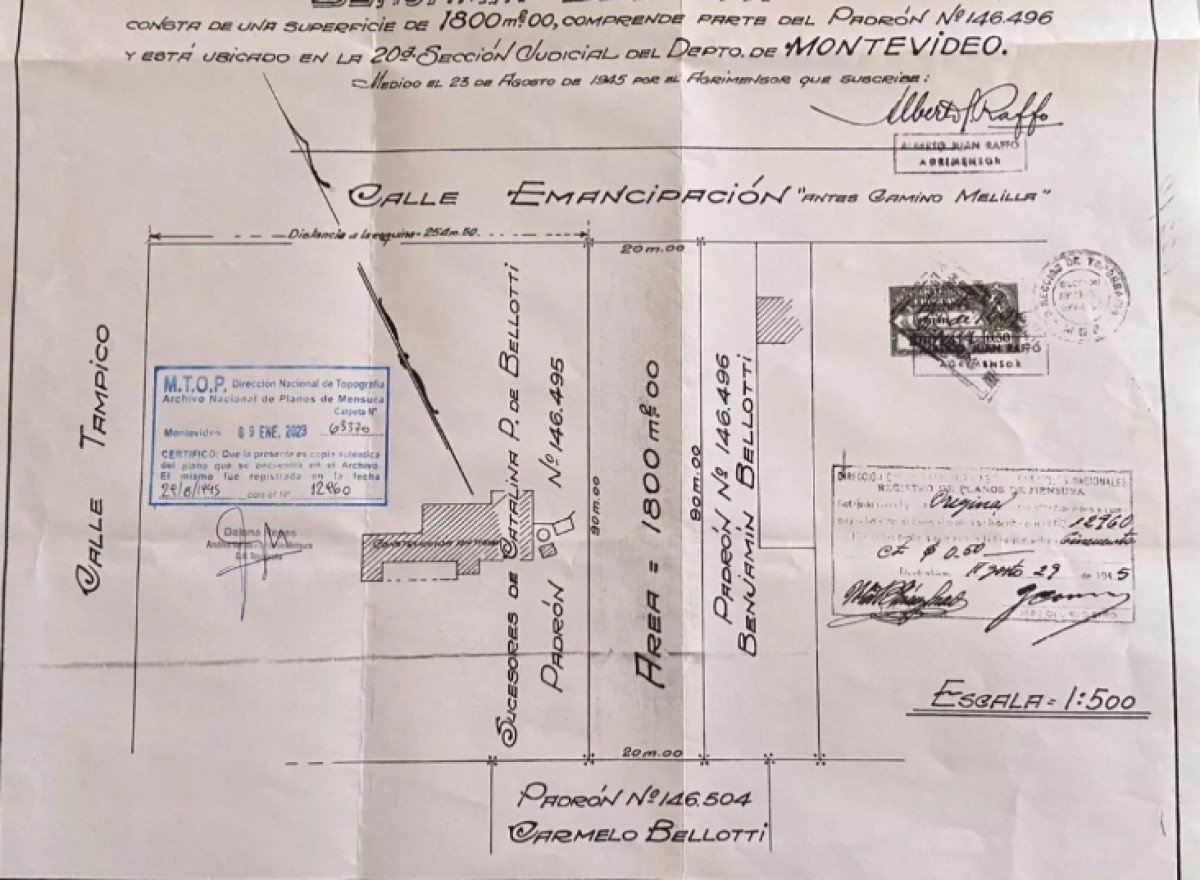 CONSTA DE UNA SUPERFICIE DE 1800m².00, COMPRENDE PARTE DEL PADRÓN Nº 146.496
Y ESTÁ UBICADO EN LA 20ª SECCIÓN JUDICIAL DEL DEPTO. DE MONTEVIDEO.
MEDIDO EL 23 DE AGOSTO DE 1945 POR EL AGRIMENSOR QUE SUSCRIBE:
Alberto J. Raffo
ALBERTO JUAN RAFFO
AGRIMENSOR
CALLE EMANCIPACIÓN "ANTES CAMINO MELILLA"
Distancia a la esquina = 254m.50.
20m.00
CALLE TAMPICO
M.T.O.P. Dirección Nacional de Topografía
Archivo Nacional de Planos de Mensura
Carpeta Nº
Montevideo 09 ENE. 2023 63370
CERTIFICO: Que la presente es copia auténtica
del plano que se encuentra en el Archivo.
El mismo fue registrado en la fecha
29/8/1945 con el Nº 12960
SUCESORES DE CATALINA P. DE BELLOTTI
PADRÓN Nº 146.495
90m.00
AREA = 1800m².00
90m.00
PADRÓN Nº 146.496
BENJAMÍN BELLOTTI
JUAN RAFFO
AGRIMENSOR
DIRECCIÓN DE TOPOGRAFIA
M.O.P.
REGISTRO DE PLANOS DE MENSURA
Original
12960
cincuenta
$ 0.50
Agosto 29 de 1945
ESCALA = 1:500
20m.00
PADRÓN Nº 146.504
CARMELO BELLOTTI